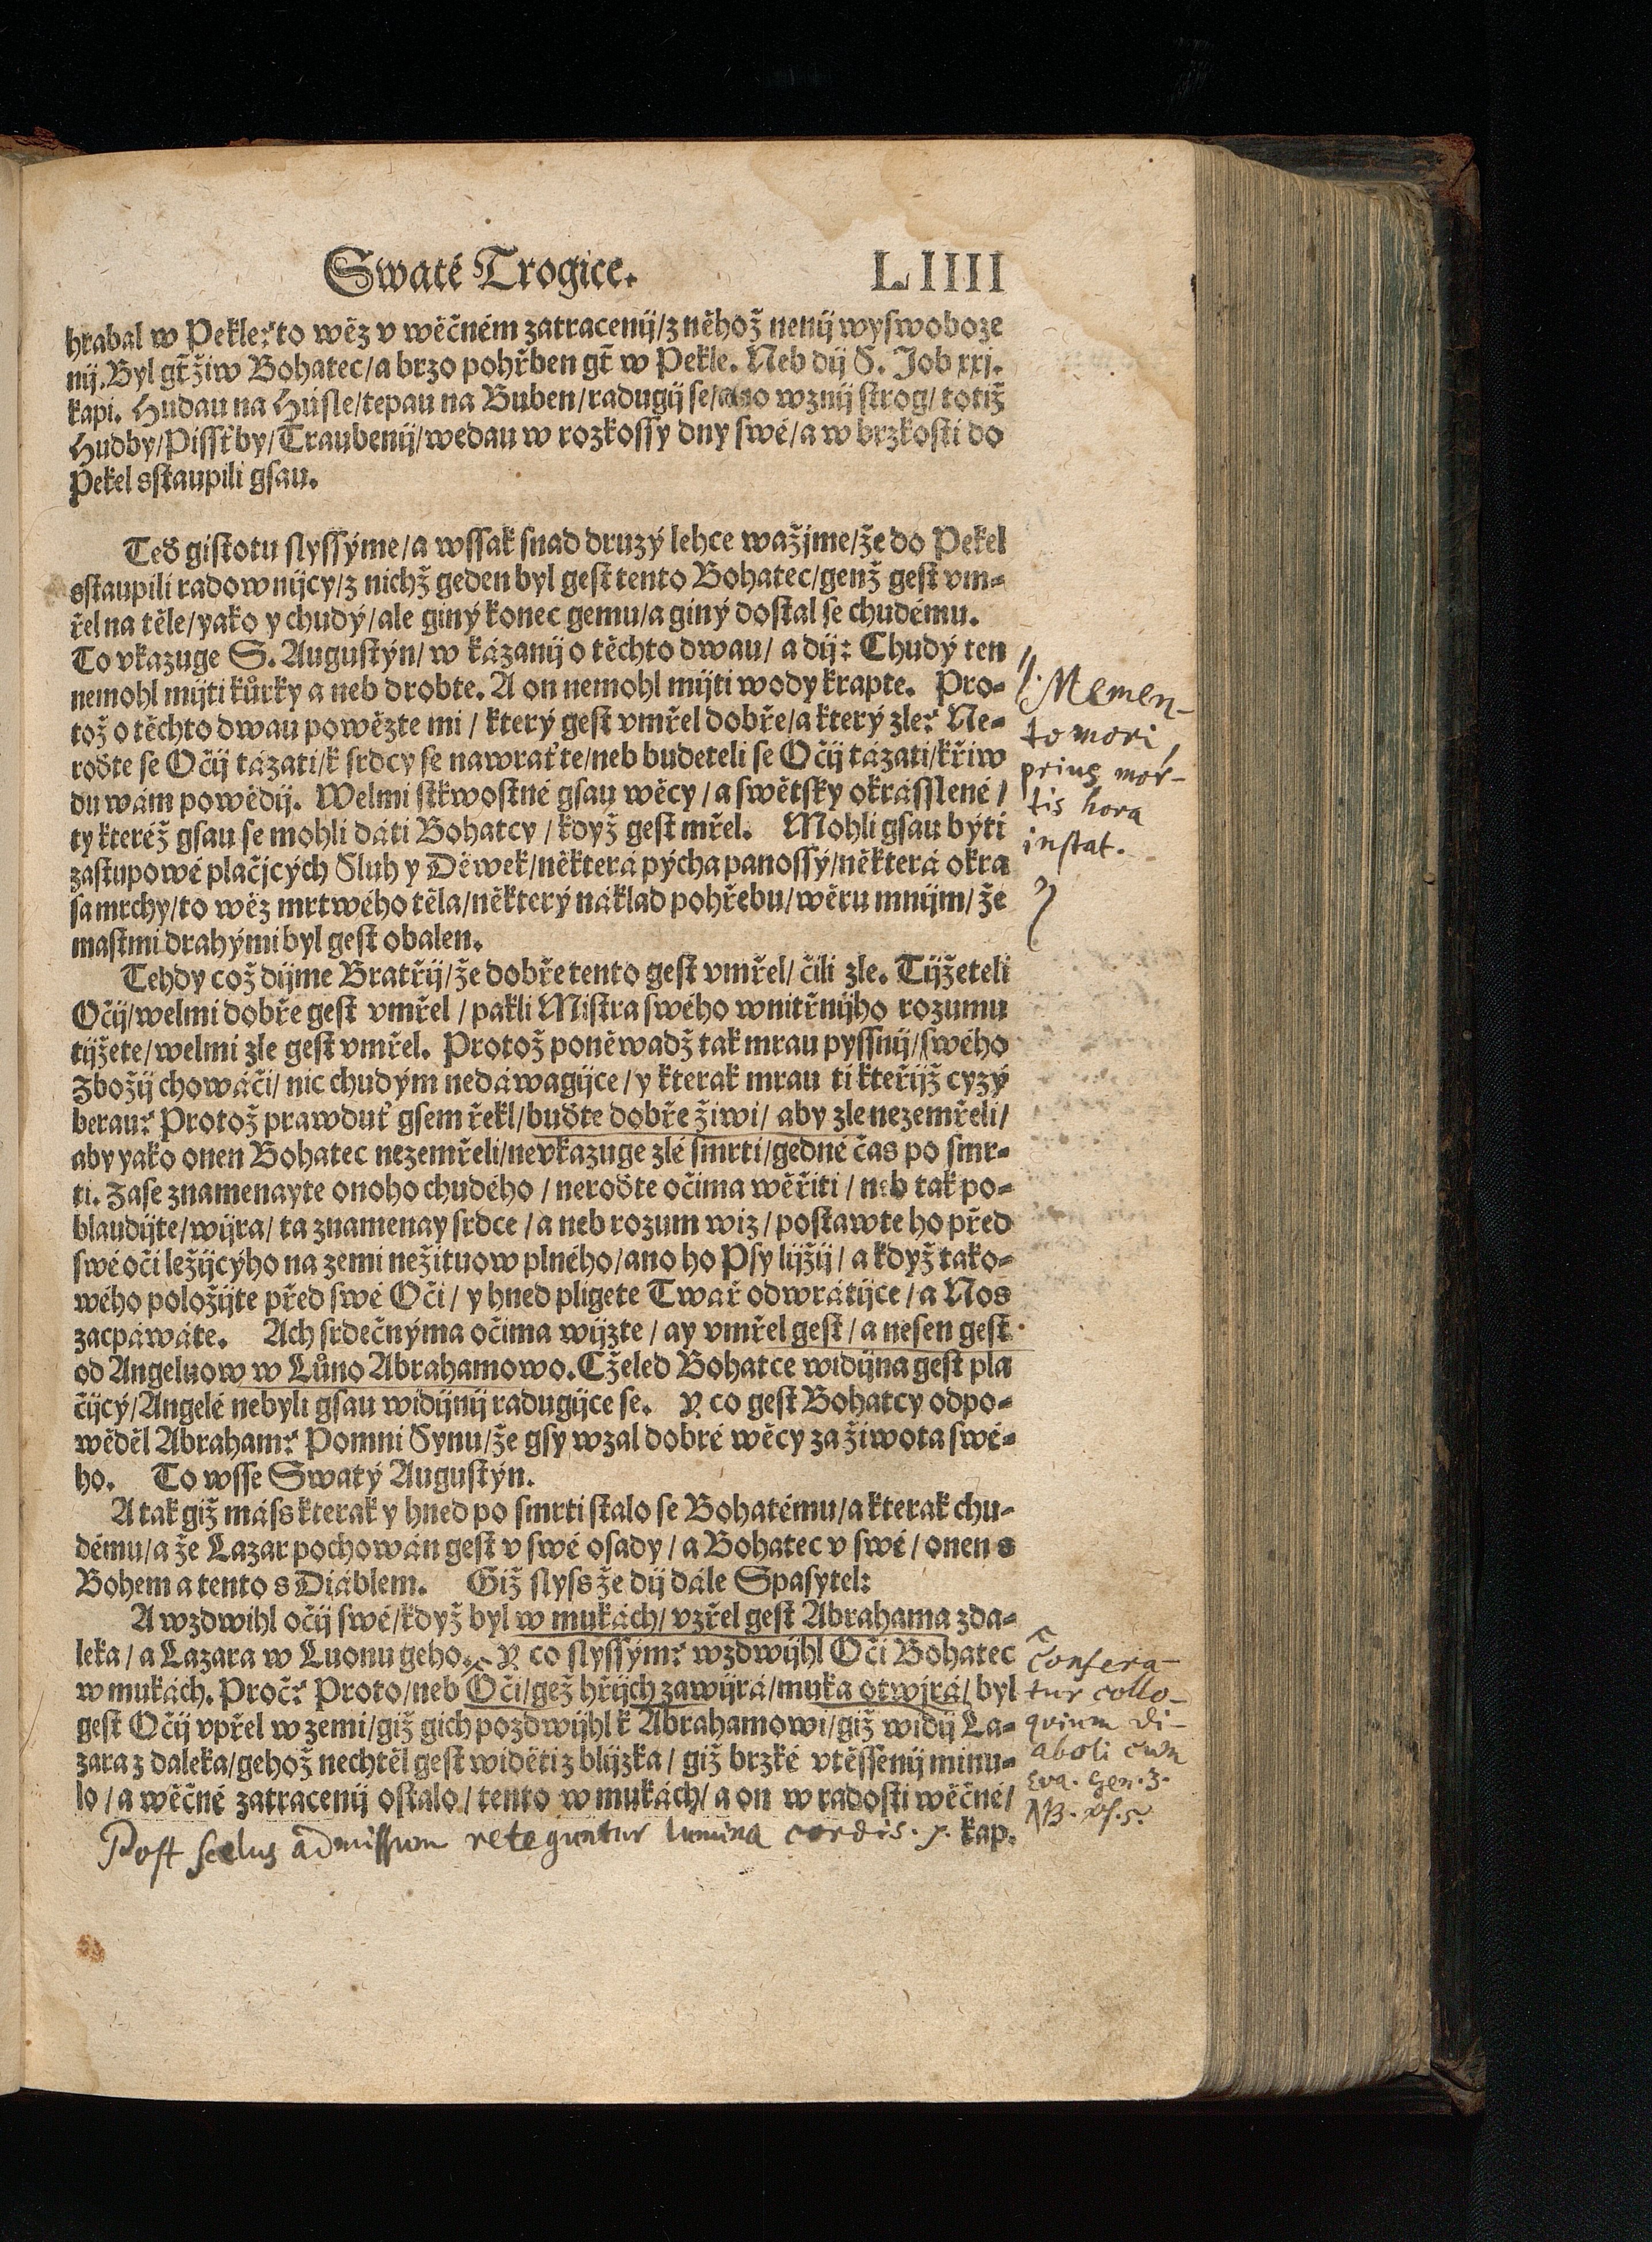 Swaté Trogice. LIIII
hrabal w Pekle? to wěz v wěčném zatracenij/z něhož nenij wyswoboze
nij. Byl gt̄ žiw Bohatec/a brzo pohřben gt̄ w Pekle. Neb dij S. Job xxj.
kapi. Hudau na Húsle/tepau na Buben/radugij se/ano wznij strog/totiž
Hudby/Pissťby/Traubenij/wedau w rozkossy dny swé/a w brzkosti do
Pekel sstaupili gsau.
Teď gistotu slyssýme/a wssak snad druzý lehce wažjme/že do Pekel
sstaupili radownijcy/z nichž geden byl gest tento Bohatec/genž gest vm-
řel na těle/yako y chudý/ale giný konec gemu/a giný dostal se chudému.
To vkazuge S. Augustýn/w kázanij o těchto dwau/a dij: Chudý ten
nemohl mijti kůrky a neb drobte. A on nemohl mijti wody krapte. Pro-
tož o těchto dwau powězte mi/který gest vmřel dobře/a který zle? Ne-
roďte se Očij tázati/k srdcy se nawraťte/neb budeteli se Očij tázati/křiw
du wám powědij. Welmi stkwostné gsau wěcy/a swětsky okrásslené/
ty kteréž gsau se mohli dáti Bohatcy/když gest mřel. Mohli gsau býti
zástupowé plačjcých Sluh y Děwek/některá pýcha panossý/některá okra
sa mrchy/to wěz mrtwého těla/některý náklad pohřebu/wěru mnijm/že
mastmi drahými byl gest obalen.
Tehdy což dijme Bratřij/že dobře tento gest vmřel/čili zle. Tijžeteli
Očij/welmi dobře gest vmřel/pakli Mistra swého wnitřnijho rozumu
tijžete/welmi zle gest vmřel. Protož poněwadž tak mrau pyssnij/swého
Zbožij chowáči/nic chudým nedáwagijce/y kterak mrau ti kteřijž cyzý
berau? Protož prawduť gsem řekl/buďte dobře žiwi/aby zle nezemřeli/
aby yako onen Bohatec nezemřeli/nevkazuge zlé smrti/gedné čas po smr-
ti. Zase znamenayte onoho chudého/neroďte očima wěřiti/neb tak po-
blaudijte/wijra/ta znamenay srdce/a neb rozum wiz/postawte ho před
swé oči ležijcýho na zemi nežituow plného/ano ho Psy lijžij/a když tako-
wého položijte před swé Oči/y hned pligete Twař odwrátijce/a Nos
zacpáwáte. Ach srdečnýma očima wijzte/ay vmřel gest/a nesen gest
od Angeluow w Lůno Abrahamowo. Cželed Bohatce widijna gest pla
čijcý/Angelé nebyli gsau widijnij radugijce se. Y co gest Bohatcy odpo-
wěděl Abraham? Pomni Synu/že gsy wzal dobré wěcy za žiwota swé-
ho. To wsse Swatý Augustýn.
A tak giž máss kterak y hned po smrti stalo se Bohatému/a kterak chu-
dému/a že Lazar pochowán gest v swé osady/a Bohatec v swé/onen s
Bohem a tento s Diáblem. Giž slyss že dij dále Spasytel:
A wzdwihl očij swé/když byl w mukách/vzřel gest Abrahama zda-
leka/a Lazara w Luonu geho. Y co slyssým? wzdwijhl Oči Bohatec
w mukách. Proč? Proto/neb Oči/gež hřijch zawijrá/muka otwjrá/byl
gest Očij vpřel w zemi/giž gich pozdwijhl k Abrahamowi/giž widij La-
zara z daleka/gehož nechtěl gest widěti z blijzka/giž brzké vtěssenij minu-
lo/a wěčné zatracenij ostalo/tento w mukách/a on w radosti wěčné/
kap.
Memen-
to mori,
prius mor-
tis hora
instat.
Confera-
tur collo-
quium di-
aboli cum
Eva. Gen. 3.
NB. pf. 5.
Post scelus admissum reteguntur lumina cordis.